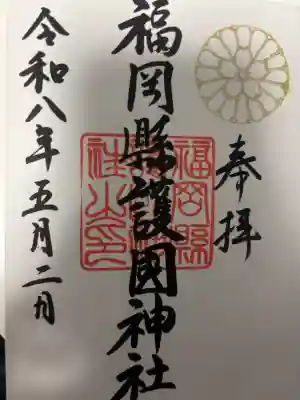 奉拝
福岡縣護國神社
福岡縣護國神社之印
令和八年五月二日